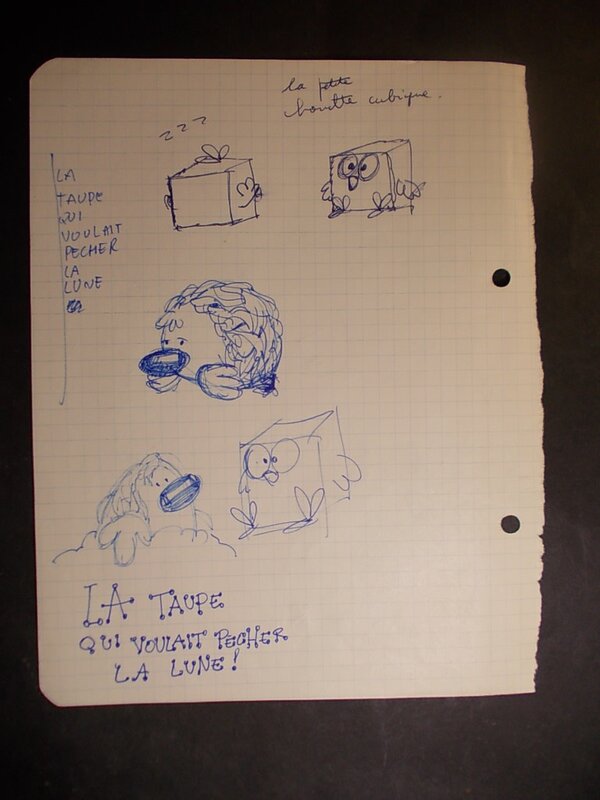 la petite
houette cubique.
z z z
LA
TAUPE
QUI
VOULAIT
PECHER
LA
LUNE
LA TAUPE
QUI VOULAIT PECHER
LA LUNE !